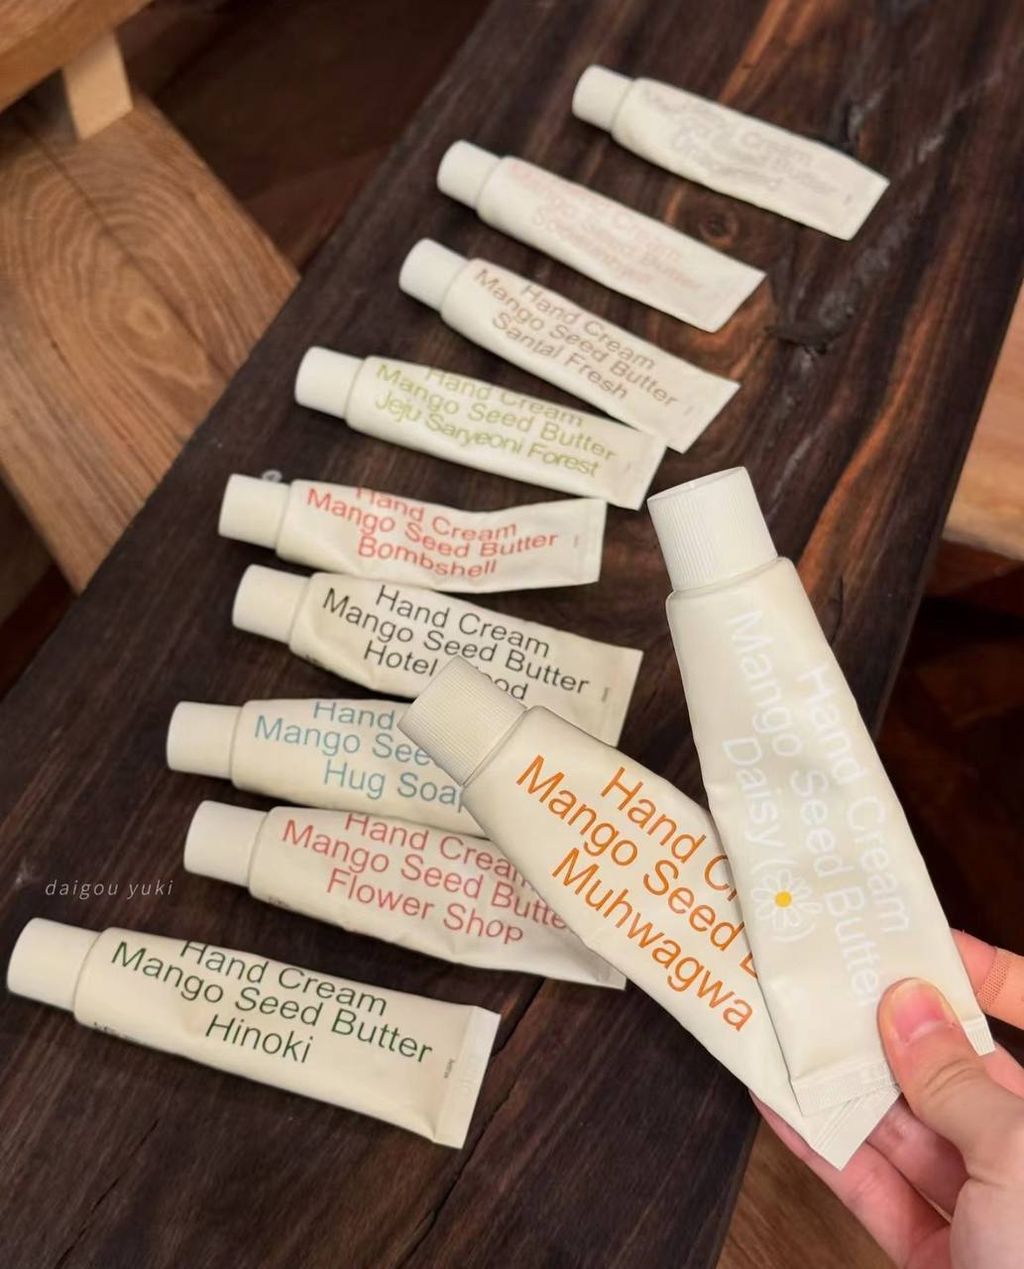 Cream
Hand Cream
Mango Seed Butter
Hand Cream
Mango Seed Butter
Santal Fresh
Hand Cream
Mango Seed Butter
Jeju Saryeoni Forest
Hand Cream
Mango Seed Butter
Bombshell
Hand Cream
Mango Seed Butter
Hotel
Hand
Mango See
Hug Soap
Hand Cream
Mango Seed Butte
Flower Shop
Hand
Mango Seed
Muhwagwa
Hand Cream
Mango Seed Butter
Daisy ( )
daigou yuki
Hand Cream
Mango Seed Butter
Hinoki